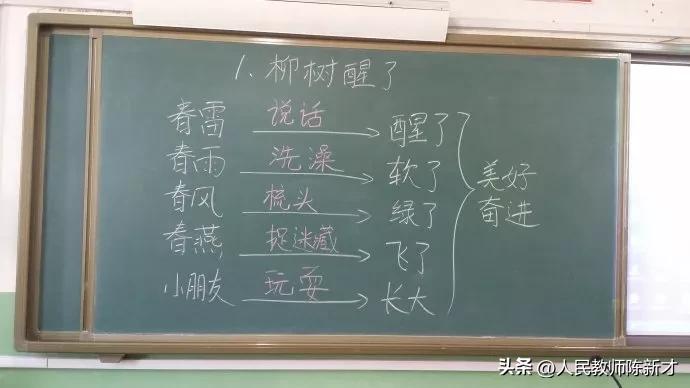 1.柳树醒了
春雷 说话 醒了
春雨 洗澡 软了
春风 梳头 绿了
春燕 捉迷藏 飞了
小朋友 玩耍 长大
美好
奋进
头条 @人民教师陈新才